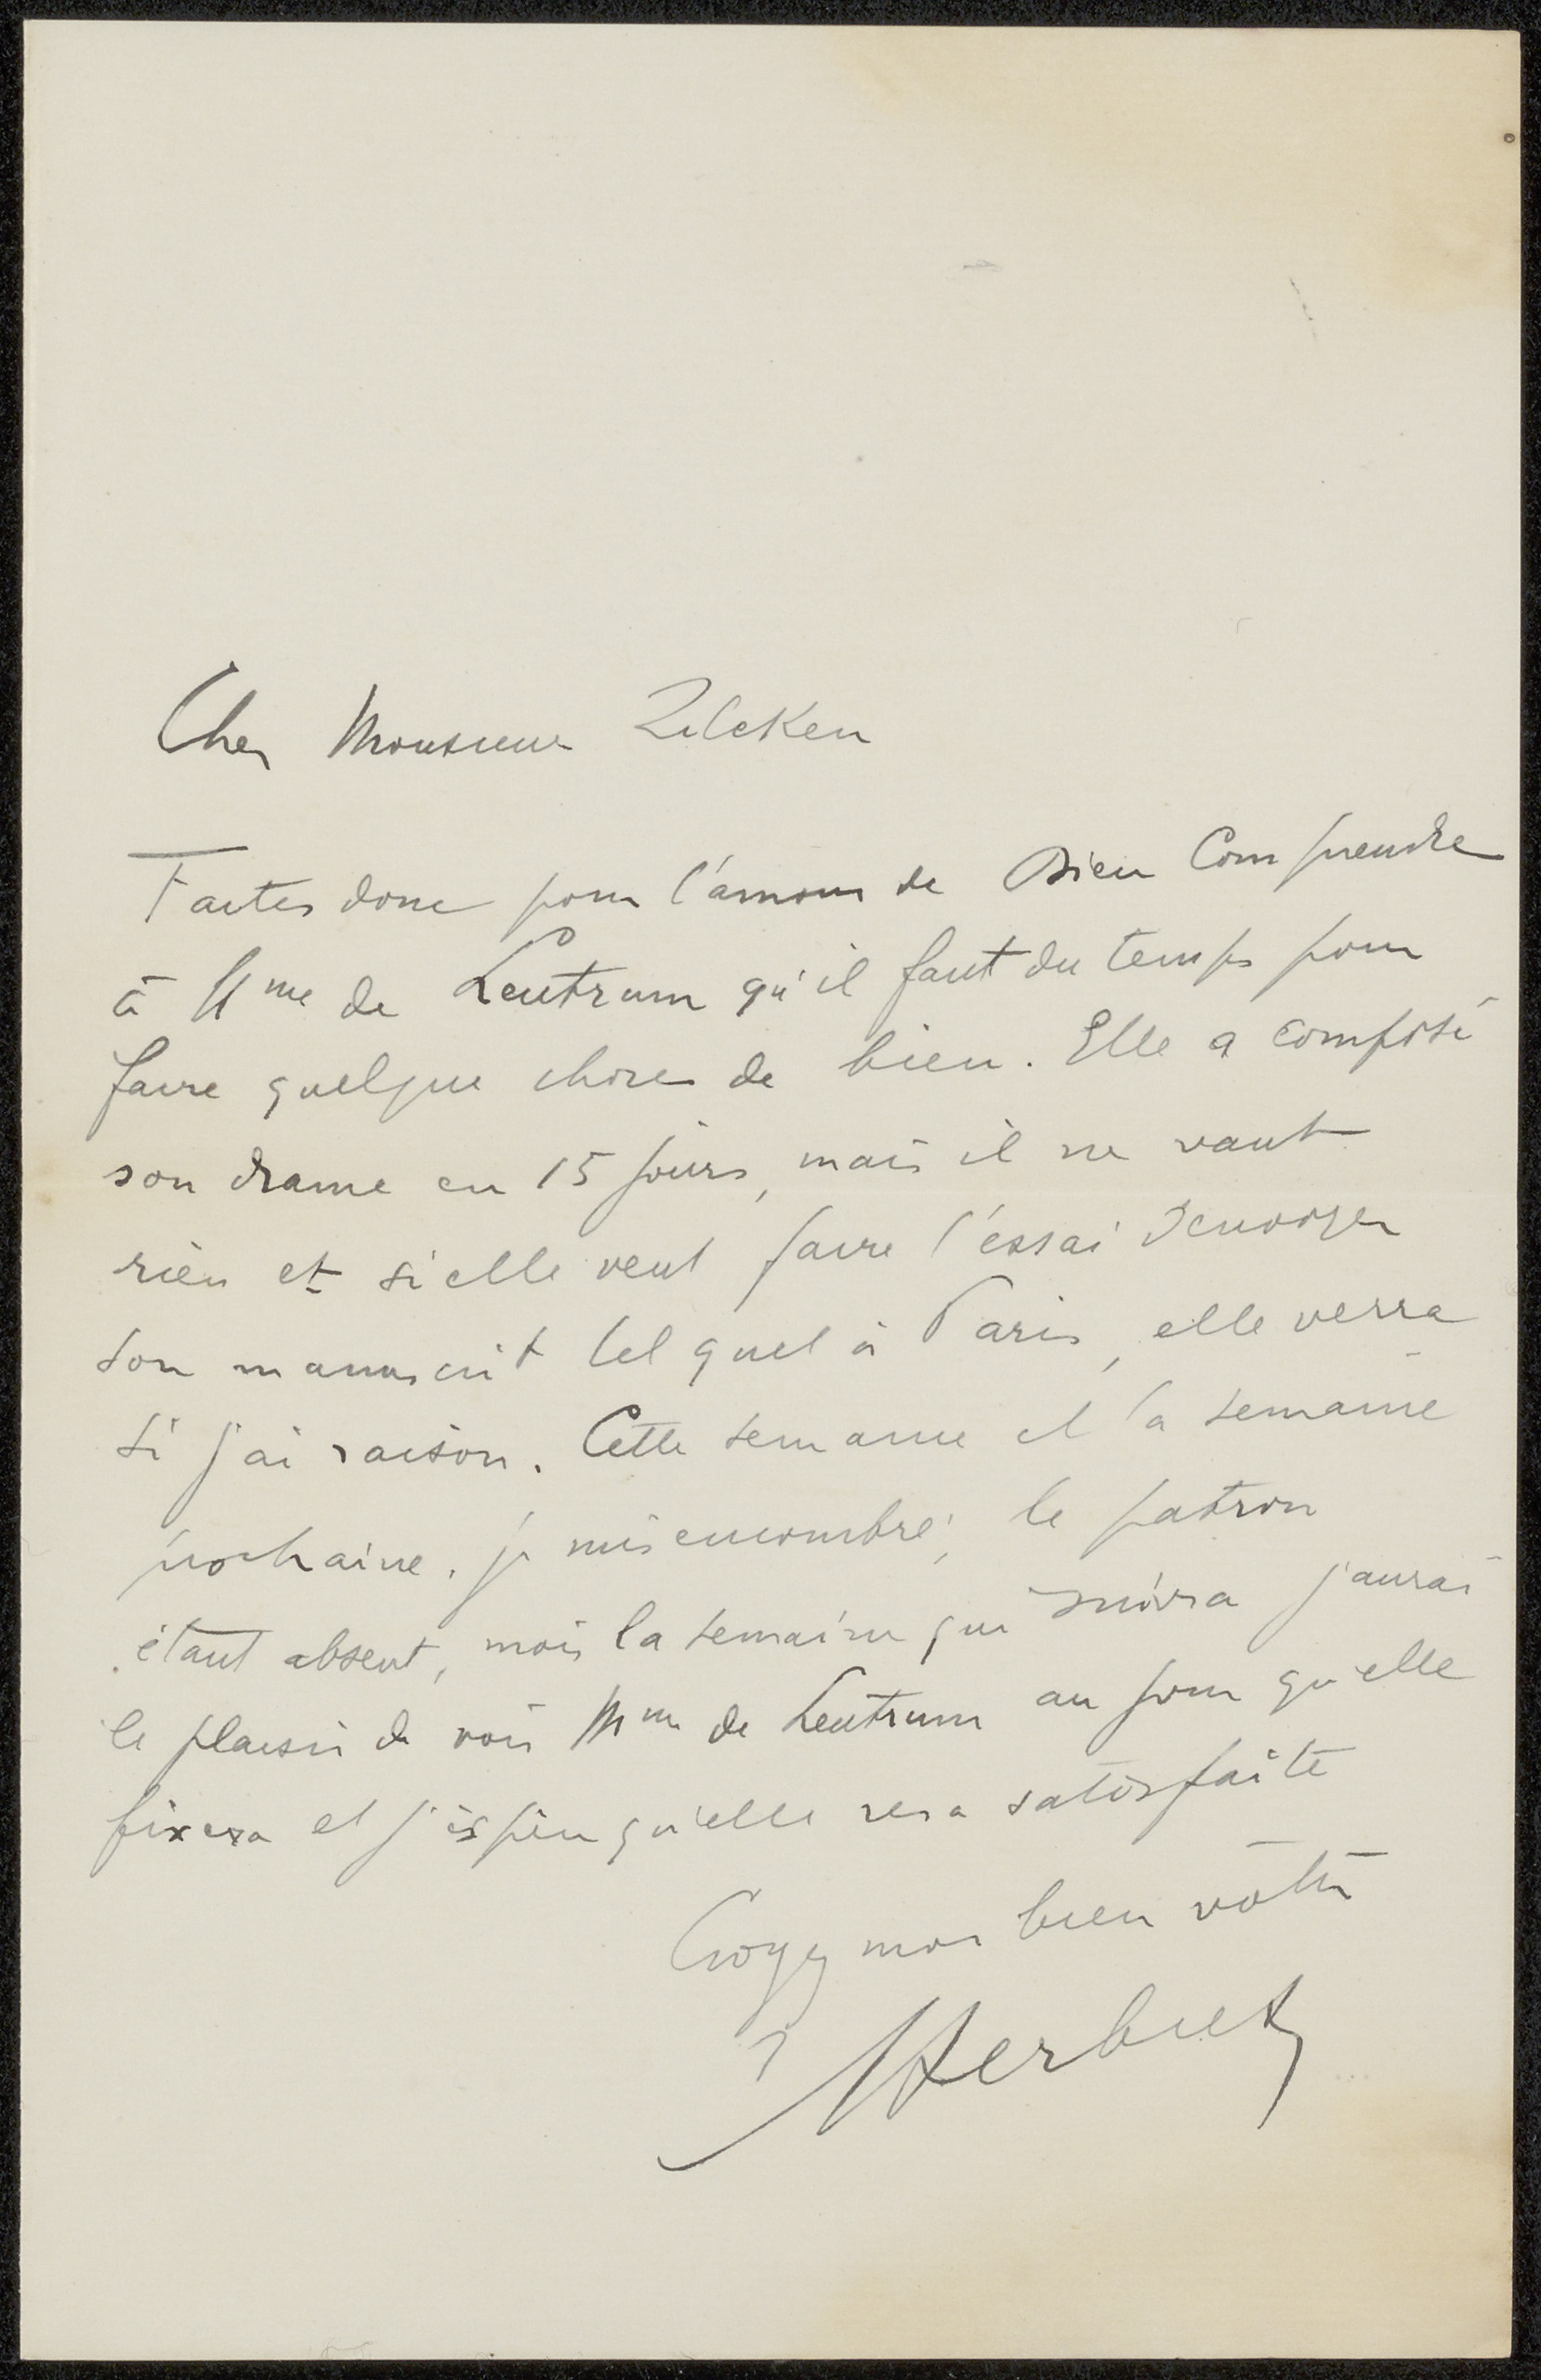 Cher Monsieur Zilcken
Faites donc pour l'amour de Dieu Comprendre
à Mme de Leutrum qu'il faut du temps pour
faire quelque chose de bien. Elle a composé
son drame en 15 jours, mais il ne vaut
rien et si elle veut faire l'essai d'envoyer
son manuscrit tel quel à Paris, elle verra
si j'ai raison. Cette semaine et la semaine
prochaine. je suis encombré, le patron
étant absent, mais la semaine qui suivra j'aurai
le plaisir de voir Mme de Leutrum au jour qu'elle
fixera et j'espère qu'elle sera satisfaite
Croyez moi bien vôtre